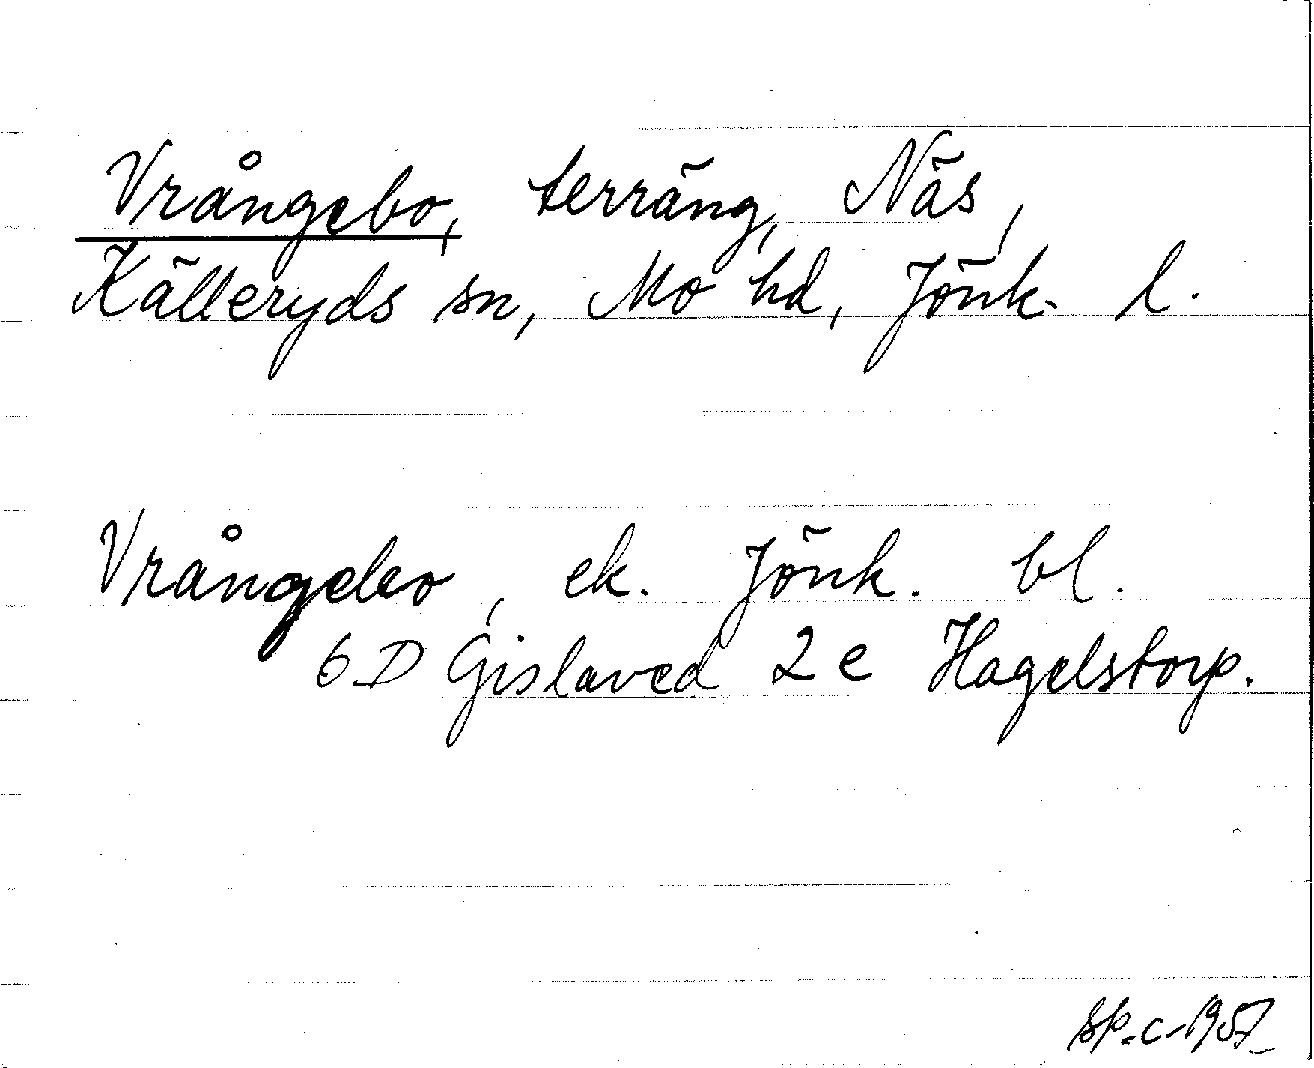 Vrångebo, terräng, Näs,
Källeryds sn, Mo hd, Jönk. l.
Vrångebo, ek. Jönk. bl.
6 D Gislaved 2 e Hagelstorp.
1957